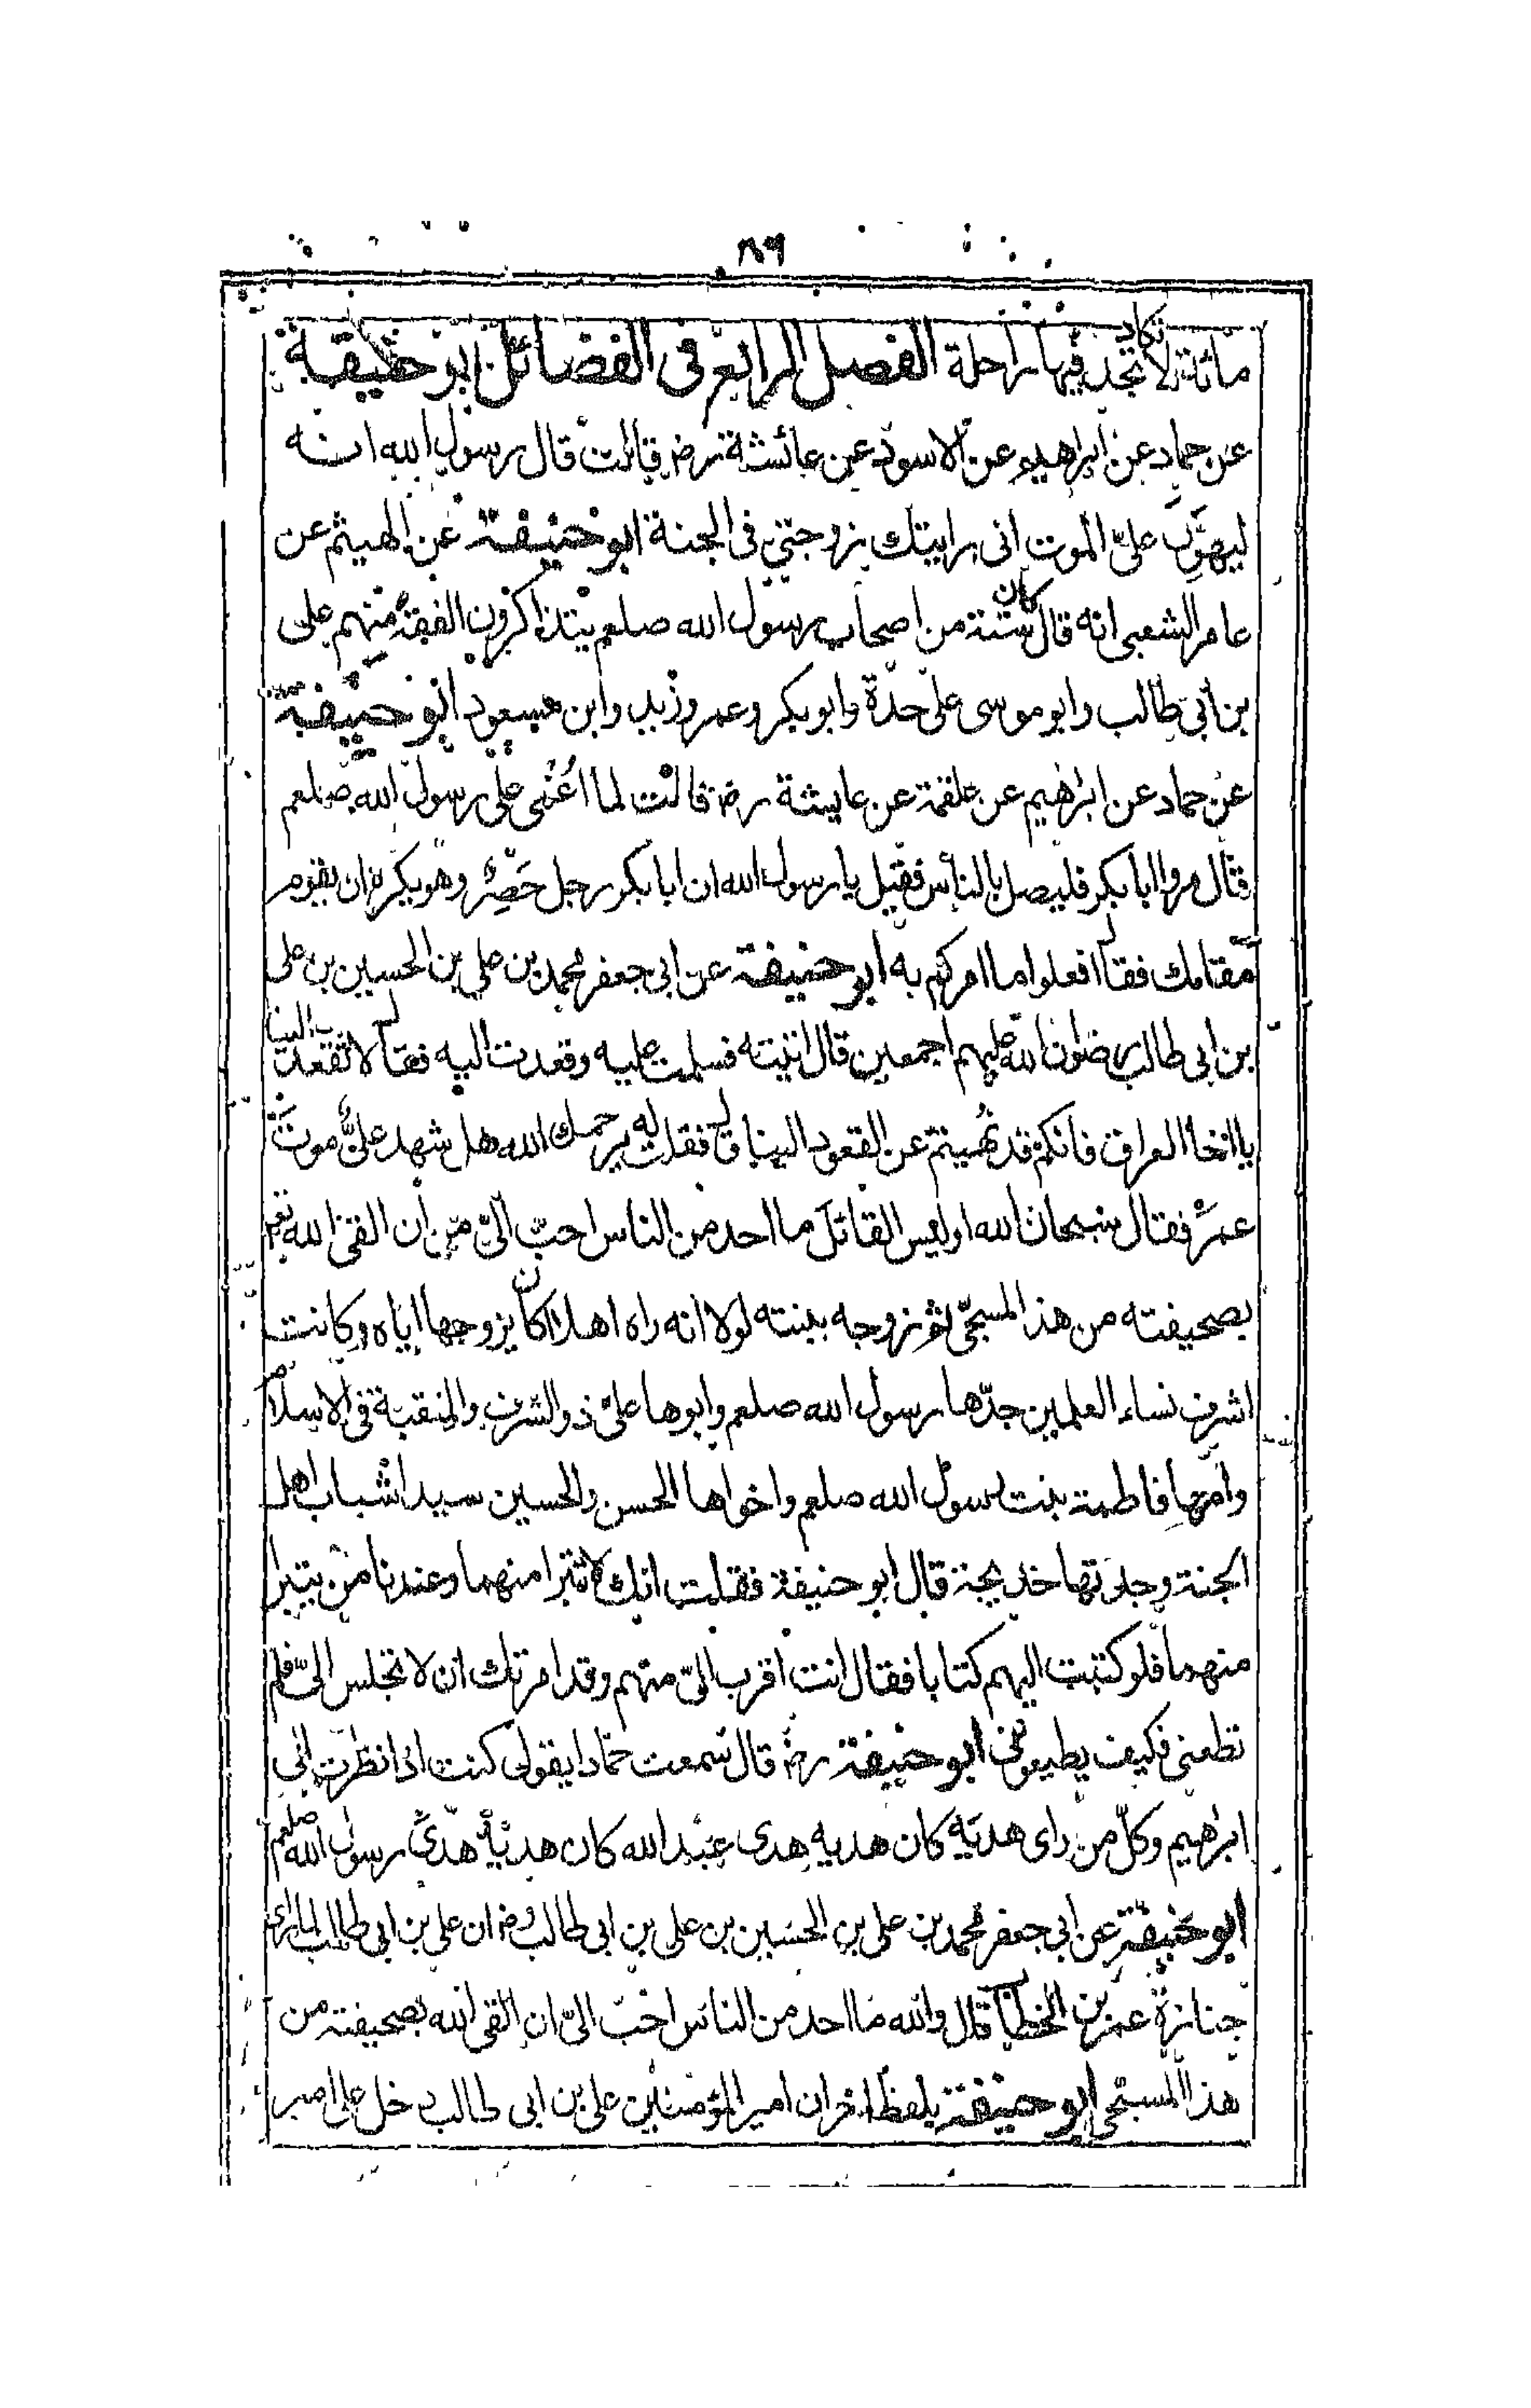 ١٨٩
مائة لا تكاد تجد فيها راحلة الفصل الرابع فى الفضائل ابو حنيفة
عن حماد عن ابراهيم عن الاسود عن عائشة رض قالت قال رسول الله انه
ليهوّن علىّ الموت انى رايتك زوجتي فى الجنة ابو حنيفة عن الهيثم عن
عامر الشعبى انه قال كان ستة من اصحاب رسول الله صلعم يتذاكرون الفقه منهم على
بن أبى طالب وابو موسى على حدة وابو بكر وعمر وزيد وابن مسعود ابو حنيفة
عن حماد عن ابرهيم عن علقمة عن عايشة رض قالت لما اغمى على رسول الله صلعم
قال مروا ابا بكر فليصل بالناس فقيل يا رسول الله ان ابا بكر رجل حَصِر وهو يكره ان يقوم
مقامك فقال افعلوا ما امركم به ابو حنيفة عن ابى جعفر محمد بن على بن الحسين بن على
بن ابى طالب رضوان الله عليهم اجمعين قال اتيته فسلمت عليه وقعدت اليه فقال لا تقعد الينا
يا اخا العراق فانكم قد نُهيتم عن القعود الينا قال فقلت له يرحمك الله هل شهد علىٌّ موتَ
عمرَ فقال سبحان الله اوليس القائل ما احد من الناس احبّ الىّ من ان القى الله تع
بصحيفته من هذا المسجّى ثم زوجه بنته لولا انه راه اهلا كان يزوجها اياه وكانت
اشرف نساء العلمين جدّها رسول الله صلعم وابوها علىّ ذو الشرف والمنقبة فى الاسلام
وامّها فاطمة بنت رسول الله صلعم واخواها الحسن والحسين سيدا شباب اهل
الجنة وجدتها خديجة قال ابو حنيفة فقلت انك لا تتبرا منهما وعندنا من يتبرا
منهما فلو كتبت اليهم كتابا فقال انت اقرب الىّ منهم وقد امرتك ان لا تجلس الىّ فلم
تطعنى فكيف يطيعونى ابو حنيفة رض قال سمعت حمادا يقول كنت اذا نظرت الى
ابرهيم وكلّ من راى هديَه كان هديه هدى عبد الله كان هديه هدى رسول الله صلعم
ابو حنيفة عن ابى جعفر محمد بن على بن الحسين بن على بن ابى طالب رض ان على بن ابى طالب لما راى
جنازة عمر بن الخطاب قال والله ما احد من الناس احبّ الىّ ان القى الله بصحيفته من
هذا المسجى ابو حنيفة بلفظ اخر ان امير المؤمنين على بن ابى طالب دخل على امير